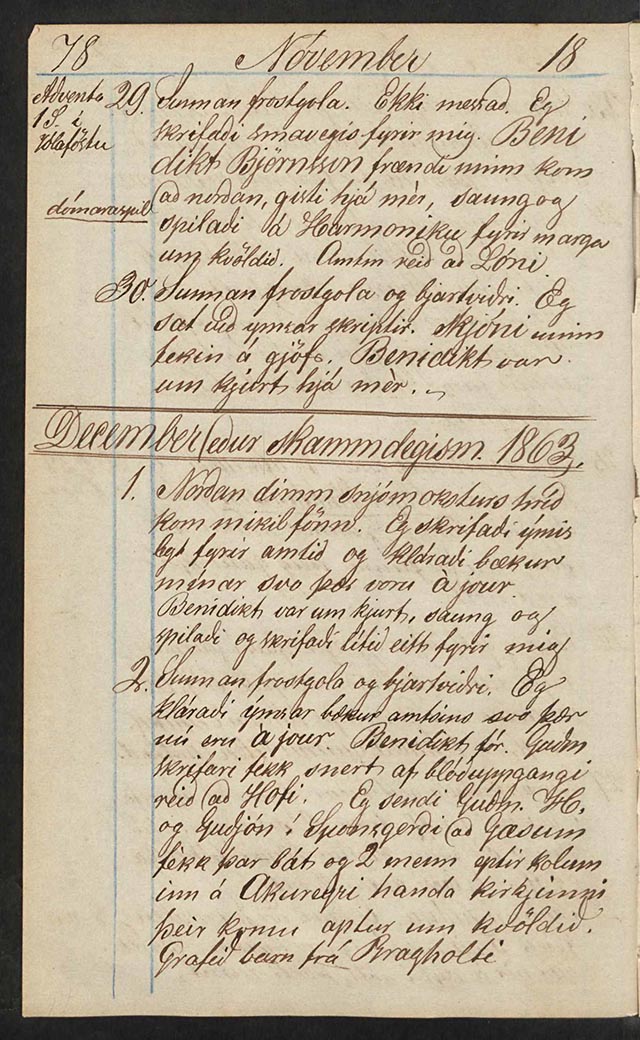 78 November 18
Advents 29. Sunnan frostgola. Ekki messað. Eg
1 S. í skrifaði smavegis fyrir mig. Beni
Jólaföstu dikt Björnsson frændi minn kom
að norðan, gisti hjá mèr, saung og
dómaraspil spilaði á Harmoniku fyrir marga
um kvöldið. Amtm reið að Lóni
30. Sunnan frostgola og bjartviðri. Eg
sat við ymsar skriptir. Skjóni minn
tekin á gjöf. Benidikt var
um kjurt hjá mèr.
December eður skammdegism. 1863.
1. Norðan dimm snjómoksturs hríð
kom mikil fönn. Eg skrifaði ýmis
legt fyrir amtið og kláraði bækur
mínar svo þær voru à jour
Benidikt var um kjurt, saung og
spilaði og skrifaði lítið eitt fyrir mig
2. Sunnan frostgola og bjartviðri. Eg
kláraði ýmsar bækur amtsins svo þær
nú eru à jour. Benidikt fór. Guðm
skrifari fekk snert af blóðuppgangi
reið að Hofi. Eg sendi Guðm. H.
og Guðjón í Sponsgerði að Gæsum
fèkk þar bát og 2 menn eptir kolum
inn á Akureyri handa kirkjunni
þeir komu aptur um kvöldið.
Grafið barn frá Bragholti